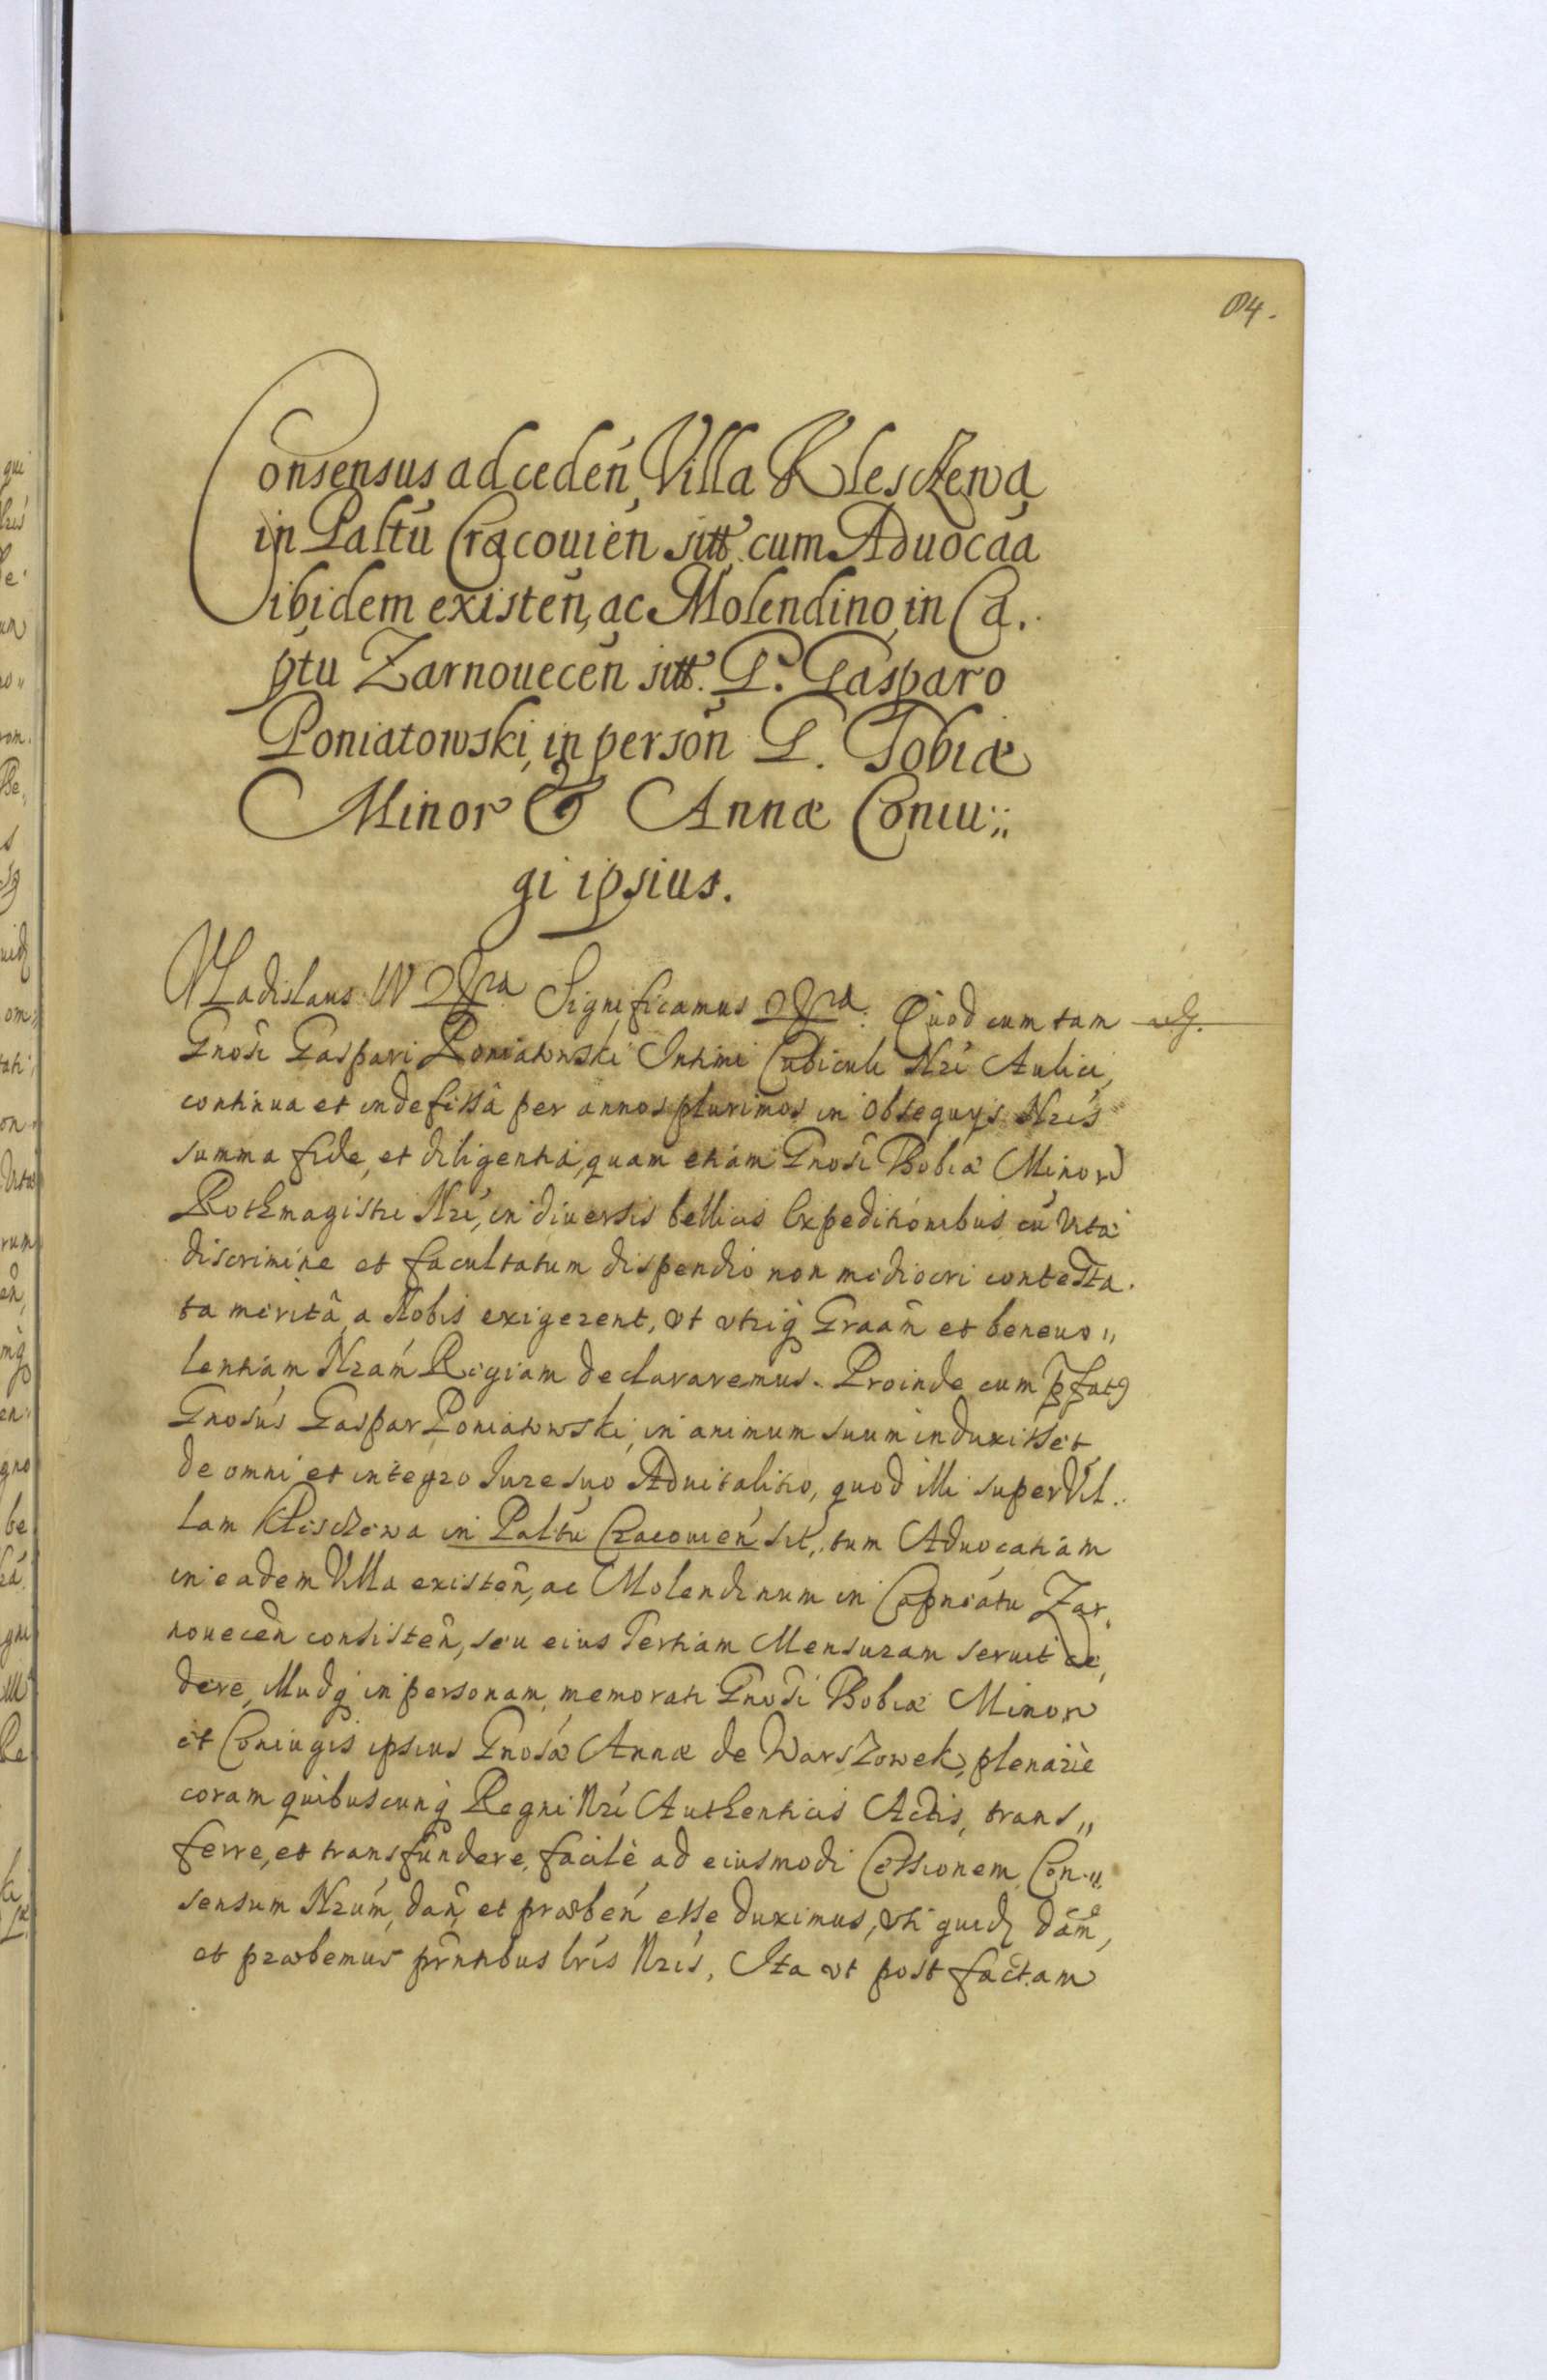 84.
Consensus ad cedeń Villa Klesczewa
in Paltu Cracouień sitt. cum Aduocãa
ibidem existeñ, ac Molendino in Ca.
ptu Zarnoueceñ sitt. G. Gasparo
Poniatowski, in persoñ G. Tobiæ
Minor & Annæ Coniu„
gi ipsius.
Vladislaus IV Significamus Quod cum tam
Gnosi Gaspari Poniatowski Intimi Cubiculi Nri Aulici,
continua et indefissa per annos plurimos in obsequys Nris
summa fide, et diligentia, quam etiam Gnosi Thobiæ Minor
Rothmagistri Nri, in diuersis bellicis Expeditionibus cũ vitæ
discrimine et facultatum dispendio non mediocri contesta.
ta merita, a Nobis exigerent, vt vtriq Graãm et beneuo„
lentiam Nram Regiam declararemus. Proinde cum pfatq
Gnosus Gaspar Poniatowski, in animum suum induxisset,
de omni et integro Jure suo Aduitalitio, quod illi super Vil.
lam Klesczewa in Paltu Cracouień sit, tum Aduocatiam
in eadem Villa existeñ, ac Molendinum in Capneatu Zar,
noueceñ consisteñ, seu eius Tertiam Mensuram seruit ce,
dere, illudq in personam memorati Gnosi Thobiæ Minor
et Coniugis ipsius Gnosæ Annæ de Warszowek, plenariè
coram quibuscunq Regni Nri Authenticis Actis, trans„
ferre, et transfundere, facilè ad eiusmodi Cessionem Con„
sensum Nrum, dañ, et præbeń esse duximus, vti quidẽ dam̃,
et præbemus prñtibus lris Nris, Ita vt post factam